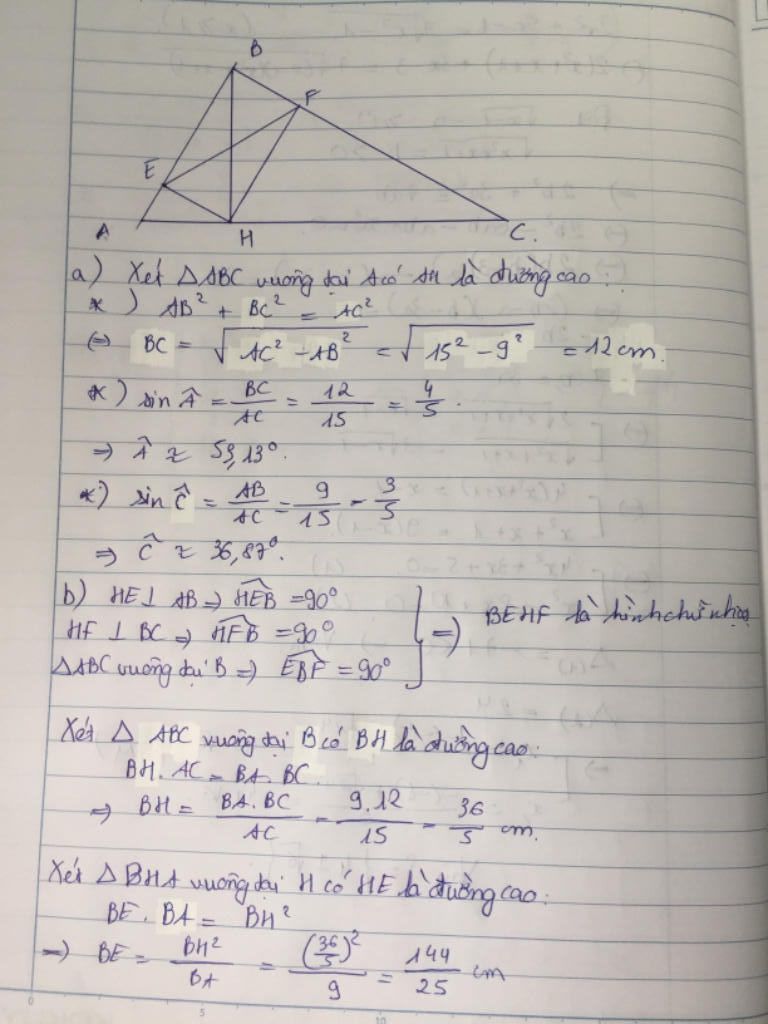 B
F
E
A
H
C.
a) Xét △ABC vuông tại A có AH là đường cao:
*) AB² + BC² = AC²
(=) BC = √(AC² - AB²) = √(15² - 9²) = 12 cm.
*) sin Â = BC/AC = 12/15 = 4/5.
=> Â ≈ 53,13°.
*) sin Ĉ = AB/AC = 9/15 = 3/5
=> Ĉ ≈ 36,87°.
b) HE ⊥ AB => HEB = 90°
HF ⊥ BC => HFB = 90°
△ABC vuông tại B => EBF = 90°
} => BEHF là hình chữ nhật
Xét △ ABC vuông tại B có BH là đường cao:
BH. AC = BA. BC
=> BH = BA. BC/AC = 9.12/15 = 36/5 cm.
Xét △BHA vuông tại H có HE là đường cao:
BE. BA = BH²
=> BE = BH²/BA = (36/5)²/9 = 144/25 cm